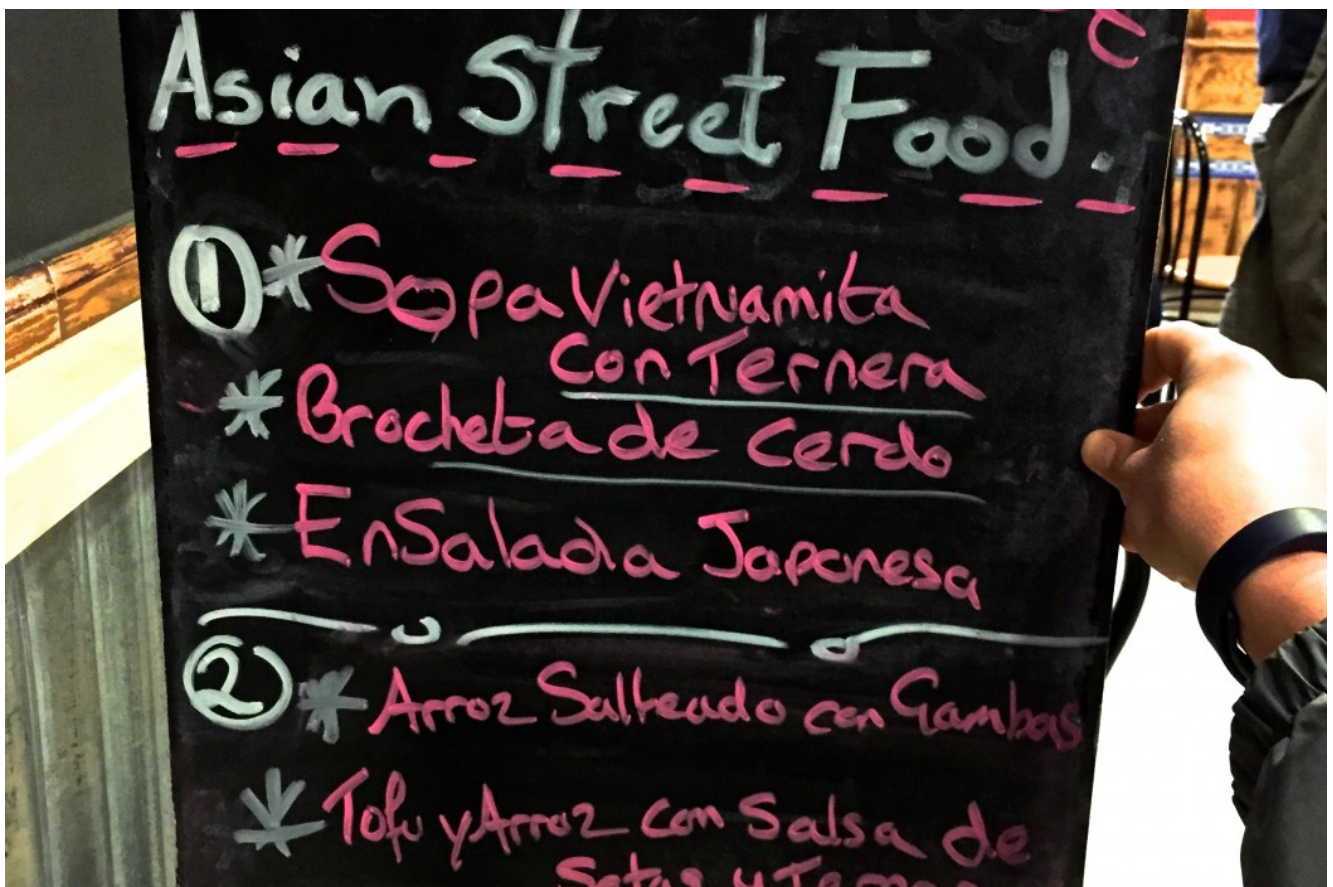 Asian Street Food.
① * Sopa Vietnamita
con Ternera
* Brocheta de Cerdo
* EnSalada Japonesa
② * Arroz Salteado con Gambas
* Tofu y Arroz con Salsa de
Setas y